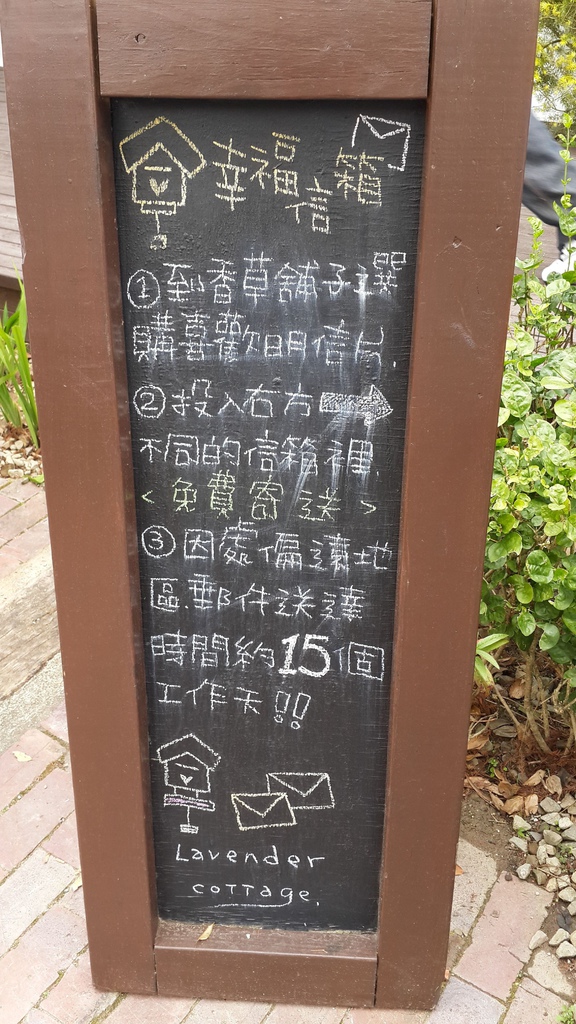 幸福信箱
①到香草舖子選
購喜歡明信片.
②投入右方➡
不同的信箱裡.
<免費寄送>
③因處偏遠地
區.郵件送達
時間約15個
工作天!!
Lavender
cottage.